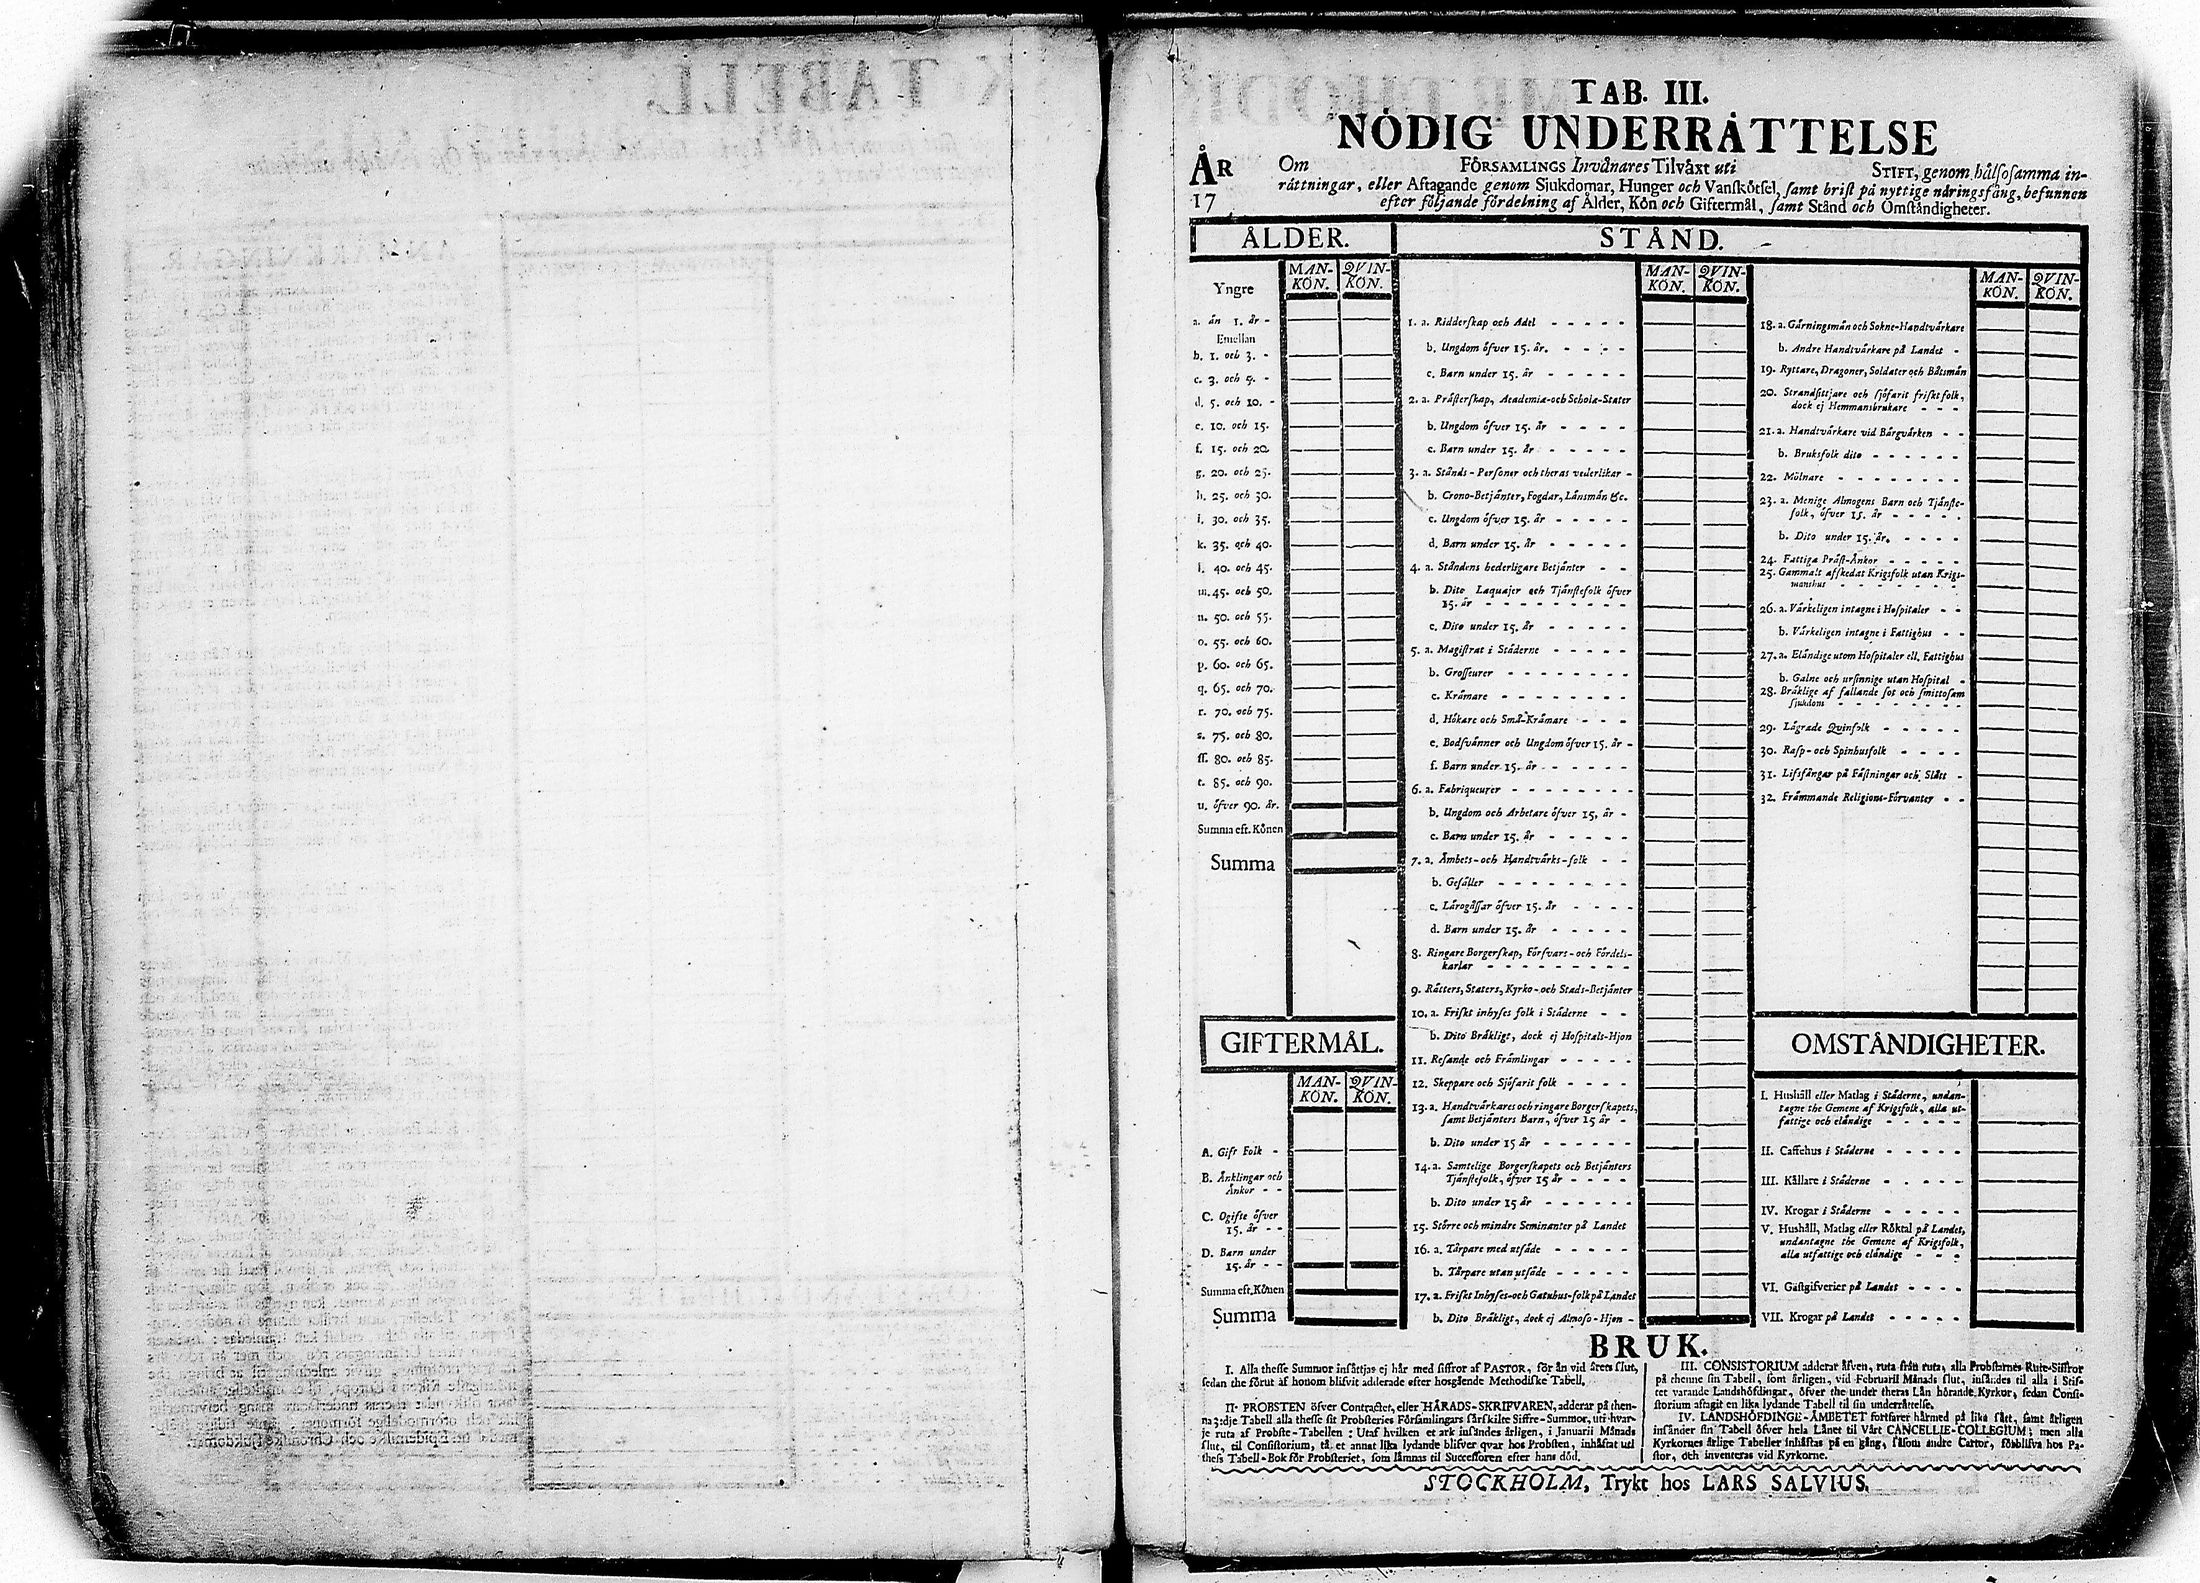 TAB. III.
NÖDIG UNDERRÄTTELSE
ÅR
17
Om FÖRSAMLINGS Invånares Tilväxt uti STIFT, genom hälsosamma in-
rättningar, eller Aftagande genom Sjukdomar, Hunger och Vanskötsel, samt brist på nyttige näringsfång, befunnen
efter följande fördelning af Ålder, Kön och Giftermål, samt Stånd och Omständigheter.
ÅLDER.
MAN-KÖN. QVIN-KÖN.
Yngre
a. än 1. år -
Emellan
b. 1. och 3. -
c. 3. och 5. -
d. 5. och 10. -
e. 10. och 15.
f. 15. och 20.
g. 20. och 25.
h. 25. och 30.
i. 30. och 35.
k. 35. och 40.
l. 40. och 45.
m. 45. och 50.
n. 50. och 55.
o. 55. och 60.
p. 60. och 65.
q. 65. och 70.
r. 70. och 75.
s. 75. och 80.
ss. 80. och 85.
t. 85. och 90.
u. öfver 90. år.
Summa eft. Könen
Summa
GIFTERMÅL.
MAN-KÖN. QVIN-KÖN.
A. Gift Folk -
B. Änklingar och
Änkor - -
C. Ogifte öfver
15. år - -
D. Barn under
15. år - -
Summa eft. Könen
Summa
STÅND.
MAN-KÖN. QVIN-KÖN.
1. a. Ridderskap och Adel - - - - -
b. Ungdom öfver 15. år. - - - -
c. Barn under 15. år - - - - -
2. a. Prästerskap, Academiæ-och Scholæ-Stater
b. Ungdom öfver 15. år - - - -
c. Barn under 15. år - - - - -
3. a. Stånds-Personer och theras vederlikar -
b. Crono-Betjänter, Fogdar, Länsmän &c.
c. Ungdom öfver 15. år - - - - -
d. Barn under 15. år - - - - -
4. a. Ståndens hederligare Betjänter - -
b. Dito Laquajer och Tjänstefolk öfver
15. år - - - - - - - -
c. Dito under 15. år - - - - -
5. a. Magistrat i Städerne - - - - -
b. Grosseurer - - - - - - - -
c. Krämare - - - - - - - -
d. Hökare och Små-Krämare - - -
e. Bodsvänner och Ungdom öfver 15. år -
f. Barn under 15. år - - - - -
6. a. Fabriqueurer - - - - - - - -
b. Ungdom och Arbetare öfver 15. år -
c. Barn under 15. år - - - - -
7. a. Ämbets-och Handtvärks-folk - -
b. Gesäller - - - - - - - -
c. Lärogåssar öfver 15. år - - - -
d. Barn under 15. år - - - - -
8. Ringare Borgerskap, Försvars-och Fördels-
karlar - - - - - - - - -
9. Rätters, Staters, Kyrko-och Stads-Betjänter
10. a. Friskt inhyses folk i Städerne - -
b. Dito Bräkligt, dock ej Hospitals-Hjon
11. Resande och Främlingar - - - - -
12. Skeppare och Sjöfarit folk - - - -
13. a. Handtvärkares och ringare Borgerskapets,
samt Betjänters Barn, öfver 15 år -
b. Dito under 15 år - - - - - -
14. a. Samtelige Borgerskapets och Betjänters
Tjänstefolk, öfver 15 år - - - -
b. Dito under 15 år - - - - - -
15. Större och mindre Seminanter på Landet
16. a. Tårpare med utsäde - - - - -
b. Tårpare utan utsäde - - - - -
17. a. Friskt Inhyses-och Gatuhus-folk på Landet
b. Dito Bräkligt, dock ej Almoso-Hjon -
MAN-KÖN. QVIN-KÖN.
18. a. Gärningsmän och Sokne-Handtvärkare
b. Andre Handtvärkare på Landet -
19. Ryttare, Dragoner, Soldater och Båtsmän
20. Strandsittjare och sjöfarit friskt folk,
dock ej Hemmansbrukare - - -
21. a. Handtvärkare vid Bärgvärken - -
b. Bruksfolk dito - - - - - -
22. Mölnare - - - - - - - -
23. a. Menige Almogens Barn och Tjänste-
folk, öfver 15. år - - - - -
b. Dito under 15. år. - - - -
24. Fattiga Präst-Änkor - - - - -
25. Gammalt afskedat Krigsfolk utan Krigs-
manshus - - - - - - - -
26. a. Värkeligen intagne i Hospitaler - -
b. Värkeligen intagne i Fattighus - -
27. a. Eländige utom Hospitaler ell. Fattighus
b. Galne och ursinnige utan Hospital -
28. Bräklige af fallande sot och smittosam
sjukdom - - - - - - - -
29. Lägrade Qvinfolk - - - - -
30. Rasp-och Spinhusfolk - - - -
31. Lifsfångar på Fästningar och Slått -
32. Främmande Religions-Förvanter - -
OMSTÄNDIGHETER.
I. Hushåll eller Matlag i Städerne, undan-
tagne the Gemene af Krigsfolk, alla ut-
fattige och eländige - - - - -
II. Caffehus i Städerne - - - - -
III. Källare i Städerne - - - - -
IV. Krogar i Städerne - - - - -
V. Hushåll, Matlag eller Röktal på Landet,
undantagne the Gemene af Krigsfolk,
alla utfattige och eländige - - -
VI. Gästgifverier på Landet - - - -
VII. Krogar på Landet - - - - -
BRUK.
I. Alla thesse Summor insättjas ej här med siffror af PASTOR, för än vid årets slut,
sedan the förut af honom blifvit adderade efter hosgående Methodiske Tabell.
II. PROBSTEN öfver Contractet, eller HÄRADS-SKRIFVAREN, adderar på then-
na 3:dje Tabell alla thesse sit Probsteries Församlingars särskilte Siffre-Summor, uti hvar-
je ruta af Probste-Tabellen: Utaf hvilken et ark insändes årligen, i Januarii Månads
slut, til Consistorium, tå et annat lika lydande blifver qvar hos Probsten, inhäftat uti
thess Tabell-Bok för Probsteriet, som lämnas til Successoren efter hans död.
III. CONSISTORIUM adderar äfven, ruta från ruta, alla Probstarnes Rute-Siffror
på thenne sin Tabell, som årligen, vid Februarii Månads slut, insändes til alla i Stif-
tet varande Landshöfdingar, öfver the under theras Län hörande Kyrkor, sedan Consi-
storium aftagit en lika lydande Tabell til sin underrättelse.
IV. LANDSHÖFDINGE-ÄMBETET fortfarer härmed på lika sätt, samt årligen
insänder sin Tabell öfver hela Länet til Vårt CANCELLIE-COLLEGIUM; men alla
Kyrkornes årlige Tabeller inhäftas på en gång, såsom andre Cartor, förblifva hos Pa-
stor, och inventeras vid Kyrkorne.
STOCKHOLM, Trykt hos LARS SALVIUS.